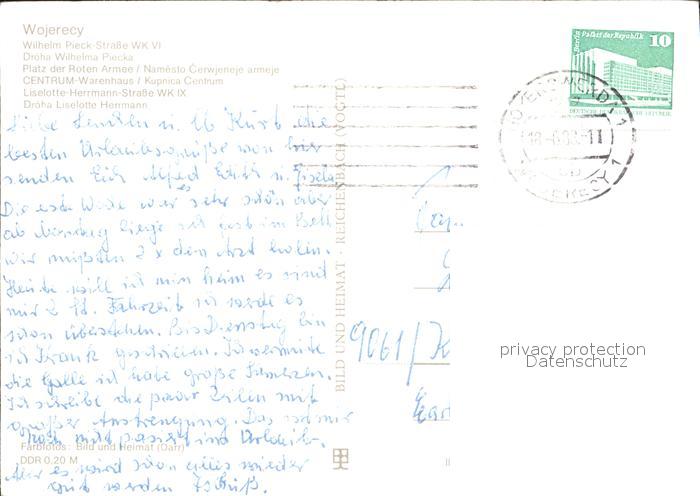 Wojerecy
Wilhelm Pieck-Straße WK VI
Dróha Wilhelma Piecka
Platz der Roten Armee / Naměsto Čerwjeneje armeje
CENTRUM-Warenhaus / Kupnica Centrum
Liselotte-Herrmann-Straße WK IX
Dróha Liselotte Herrmann
Berlin Palast der Republik
10
DEUTSCHE DEMOKRATISCHE REPUBLIK
Liebe u. Kurt die
besten Urlaubsgrüße von hier
senden Euch Alfred Edith u. Gisela
Die erste Woche war es sehr schön aber
ab liege ich fest im Bett
wir mußten 2 x den Arzt holen.
Heute will ich nun heim es sind
nur 2 Fahrzeit ich werde es
schon überstehen. Bis Dienstag bin
ich Krank geschrieben. Ich vermute
die Galle ich habe große Schmerzen.
Ich schreibe die paar Zeilen mit
großer Anstrengung. Das ist mir
noch nie passiert im Urlaub.
Aber es wird schon alles wieder
gut werden Tschüß.
Farbfotos: Bild und Heimat (Darr)
DDR 0,20 M
BILD UND HEIMAT · REICHENBACH (VOGTL)
9061/K
privacy protection
Datenschutz